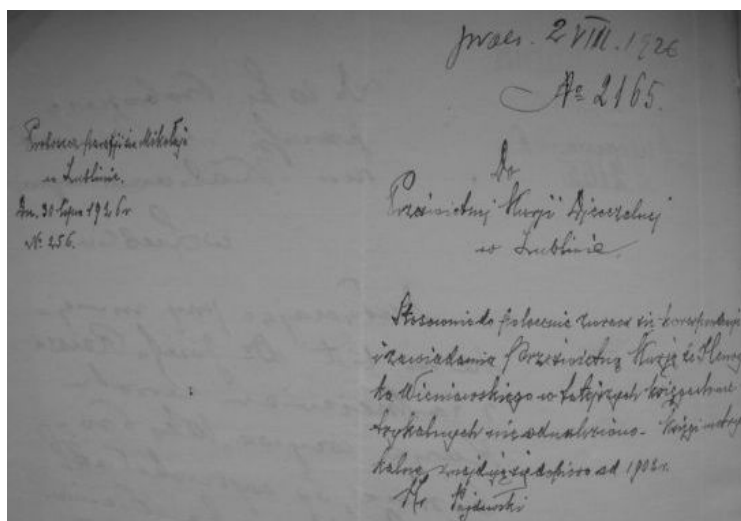 praes. 2 VIII. 1926
№ 2165.
Proboszcz parafji św. Mikołaja
w Lublinie.
Dn. 30 lipca 1926 r.
№ 256.
Do
Prześwietnej Kurji Djecezalnej
w Lublinie
Stosownie do polecenia zwraca się korespondencję
i zawiadamia Prześwietną Kurję że Henry
ka Wieniawskiego w tutejszych księgach me
trykalnych nie odnaleziono. Księgi metry
kalne znajdują się dopiero od 1905 r.
Ks.